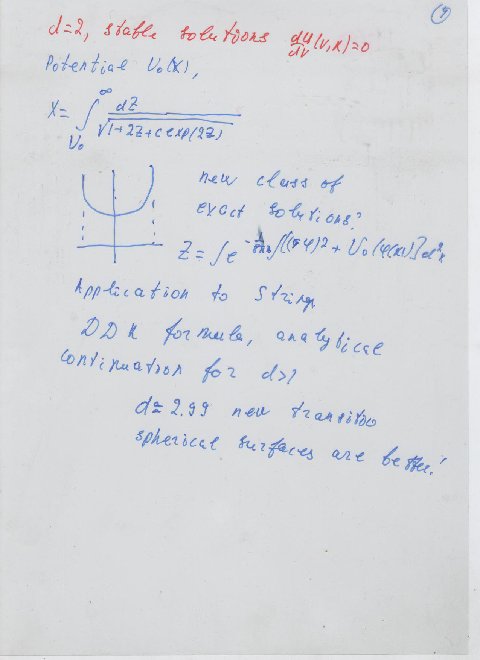 9
d=2, stable solutions dU/dv(v,x)=0
Potential V₀(x),
x= ∫_{V₀}^{∞} dZ/√(1+2Z+c exp(2Z))
new class of
exact solutions?
Z = ∫e ∫[(∇φ)² + V₀(φ(x))]d²x
Application to String
DDK formula, analytical
continuation for d>1
d≃2.99 new transition
spherical surfaces are better!